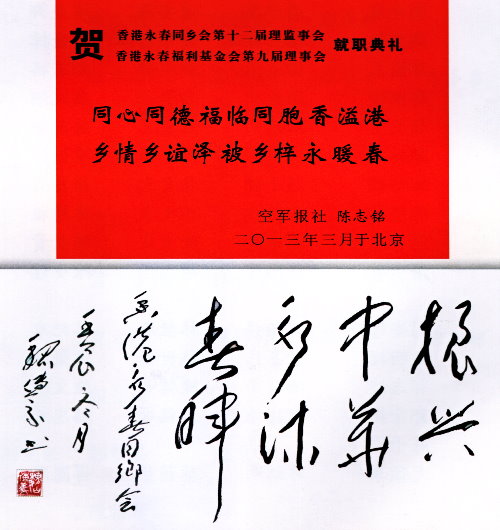 贺
香港永春同乡会第十二届理监事会
香港永春福利基金会第九届理事会
就职典礼
同心同德福临同胞香溢港
乡情乡谊泽被乡梓永暖春
空军报社 陈志铭
二〇一三年三月于北京
振兴
中华
永沐
春晖
香港永春同鄉会
冬月
书